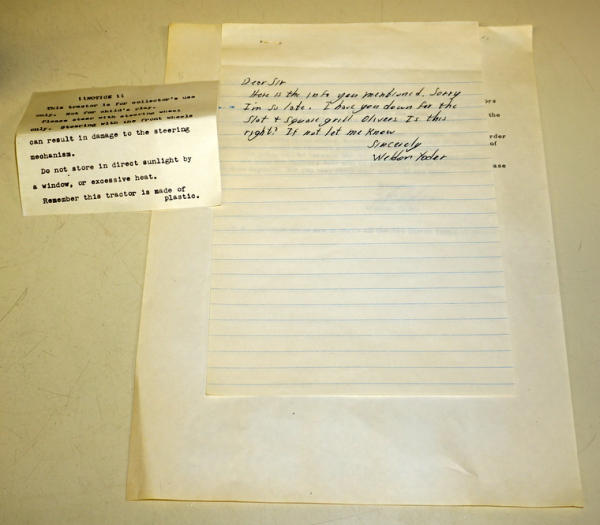 !!NOTICE!!
This tractor is for collector's use
only. Not for child's play.
Please steer with steering wheel
only. Steering with the front wheels
can result in damage to the steering
mechanism.
Do not store in direct sunlight by
a window, or excessive heat.
Remember this tractor is made of
plastic.
Dear Sir
Here is the info you mentioned. Sorry
I'm so late. I have you down for the
Slot + Square grill Olivers Is this
right? If not let me know
Sincerely
Weldon Yoder
ors
the
rder
of
ase